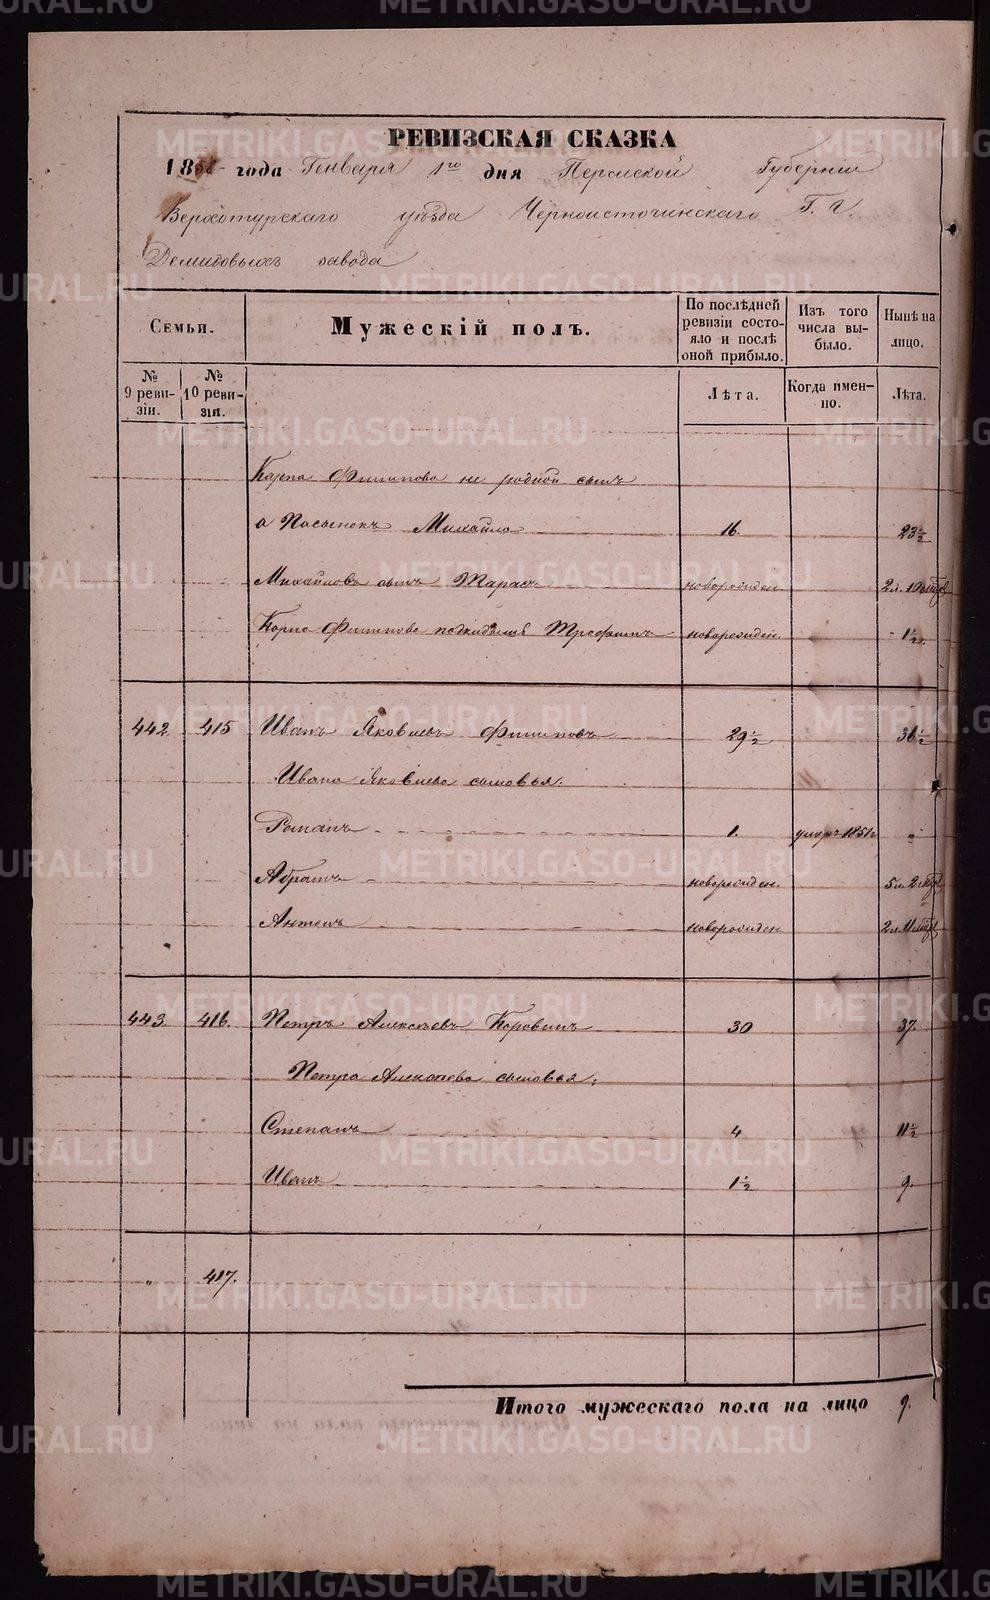 РЕВИЗСКАЯ СКАЗКА
1858 года Генваря 1го дня Пермской Губернии
Верхотурскаго уѣзда Черноисточинскаго Г. Г.
Демидовыхъ завода
Семьи.
Мужескій полъ.
По послѣдней ревизіи состояло и послѣ оной прибыло.
Изъ того числа выбыло.
Нынѣ на лицо.
№ 9 ревизіи.
№ 10 ревизія.
Лѣта.
Когда именно.
Лѣта.
Карпа Филипова не родной сынъ
а Пасынокъ Михайло 16. 23½
Михайловъ сынъ Тарасъ новорожден. 2 л. 10 мѣс
Карпа Филипова подкидышъ Трофимъ новорожден. 1½
442. 415 Иванъ Яковлевъ Филиповъ 29½ 36½
Ивана Яковлева сыновья:
Романъ 1. умеръ 1851г "
Абрамъ новорожден. 5 л. 2 мѣс
Антонъ новорожден 2 л. 11 мѣс
443. 416. Петръ Алексѣевъ Коровинъ 30 37.
Петра Алексѣева сыновья:
Степанъ 4 11½
Иванъ 1½ 9.
" 417.
Итого мужескаго пола на лицо 9.
METRIKI.GASO-URAL.RU